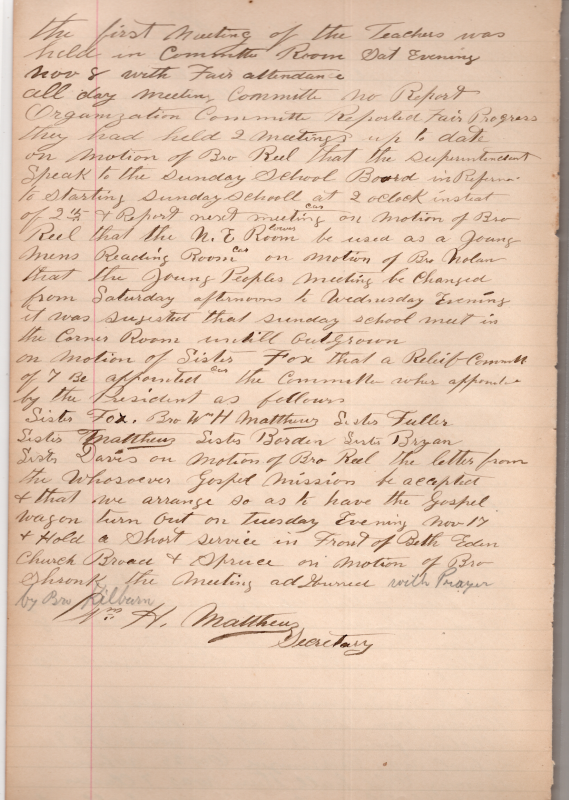 the first Meeting of the Teachers was
held in Committe Room Sat Evening
Nov 8 with Fair attendance
all day meeting Committe no Report
Organization Committe Reported Fair Progress
they had held 2 Meetings up to date
on motion of Bro Reel that the Superintendent
Speak to the Sunday School Board in Referna
to starting Sunday schooll at 2 oclock insted
of 2 1/2 & Report next meeting car on motion of Bro
Reel that the N. E Room lower be used as a Young
mens Reading Room car on motion of Bro Nolan
that the Young Peoples Meeting be Changed
from Saturday afternoons to Wednesday Evening
it was sugested that Sunday school meet in
the Corner Room untill outgrown
on Motion of Sister Fox that a Relief Committ
of 7 Be appointed car the Committe wher appointe
by the President as follows
Sister Fox. Bro Wm H Matthews Sister Fuller
Sister Matthews Sister Borden Sister Bryan
Sister Davis on Motion of Bro Reel the letter from
the Whosoever Gospel Mission be accepted
& that we arrange so as to have the Gospel
wagon turn out on Tuesday Evening Nov 17
& Hold a Short service in Front of Beth Eden
Church Broad & Spruce on Motion of Bro
Shronk the Meeting adJourned with Prayer
by Bro Kilburn
Wm H. Matthews
Secretary